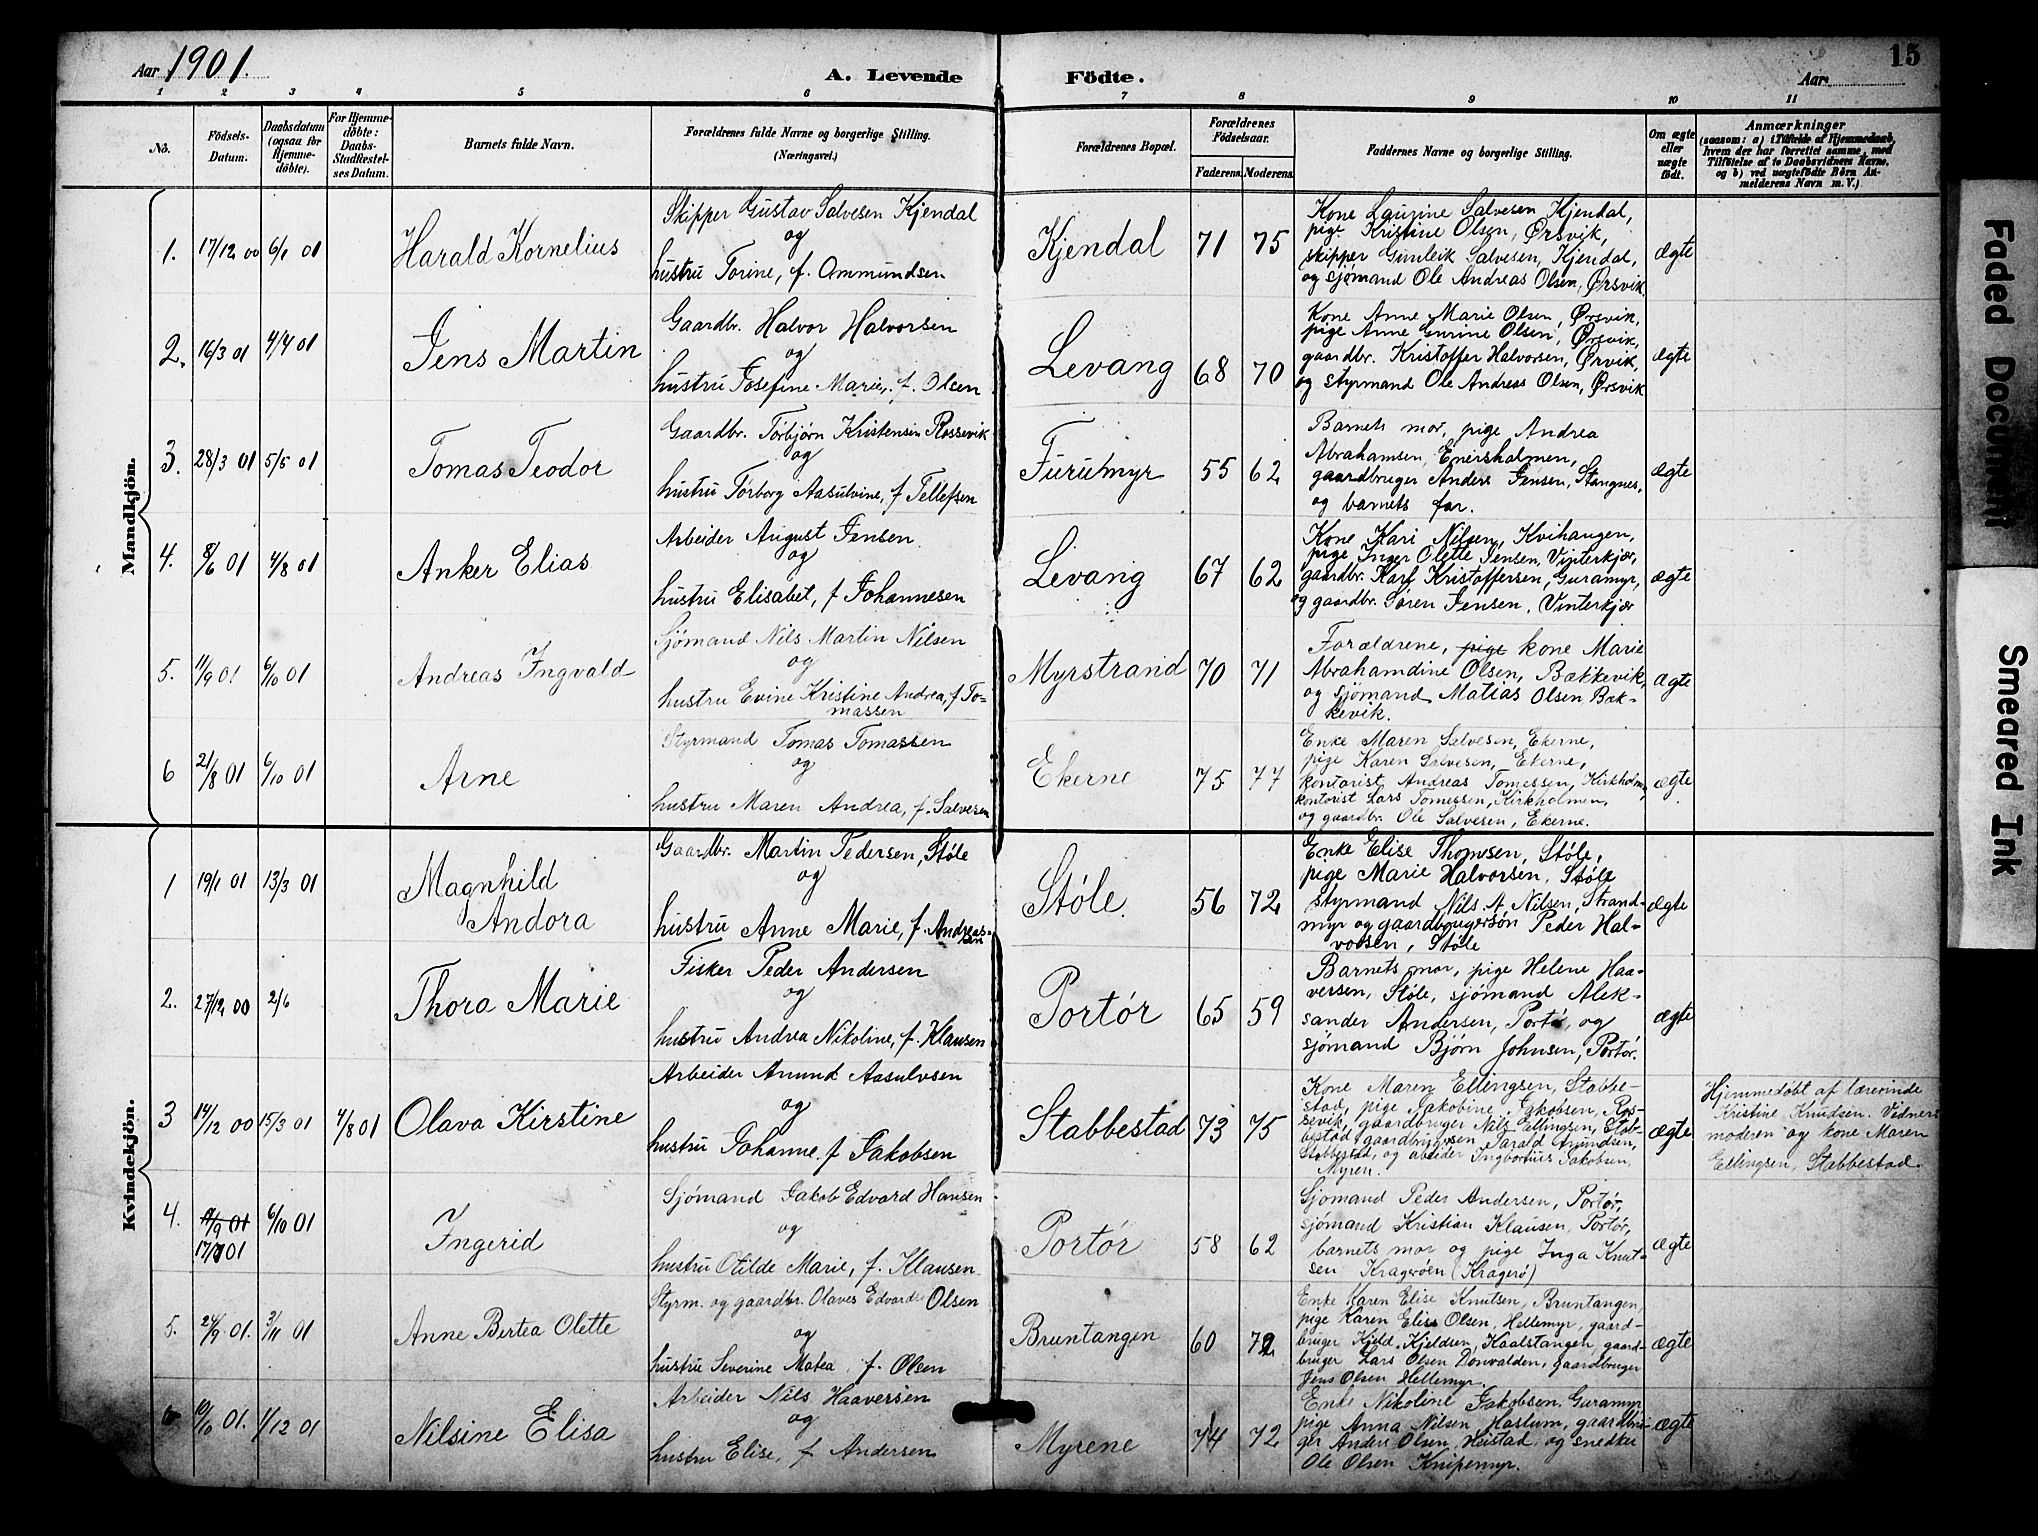 Aar 1901.
A. Levende Födte.
Aar
15
1 2 3 4 5 6 7 8 9 10 11
No.
Födsels-Datum.
Daabsdatum (ogsaa for Hjemmedöbte).
For Hjemmedöbte: Daabs-Stadfæstelses Datum.
Barnets fulde Navn.
Forældrenes fulde Navne og borgerlige Stilling. (Næringsvei.)
Forældrenes Bopæl.
Forældrenes Födselsaar.
Faderens. Moderens.
Faddernes Navne og borgerlige Stilling.
Om ægte eller uægte födt.
Anmærkninger
(saasom: a) i Tilfælde af Hjemmedaab, hvem der har forrettet samme, med Tilföielse af to Daabsvidners Navne, og b) ved uægtefödte Börn Anmelderens Navn m. V.)
Mandkjön.
1. 17/12 00 6/1 01
Harald Kornelius
Skipper Gustav Salvesen Kjendal
og
hustru Torine, f. Ammundsen
Kjendal 71 75
Kone Laurine Salvesen Kjendal,
pige Kristine Olsen, Ørsvik,
skipper Gunleik Salvesen, Kjendal,
og sjømand Ole Andreas Olsen, Ørsvik.
ægte
2. 16/3 01 4/4 01
Jens Martin
Gaardbr. Halvor Halvorsen
og
hustru Josefine Marie, f. Olsen
Levang 68 70
Kone Anne Marie Olsen, Ørsvik,
pige Anne Gurine Olsen, Ørsvik,
gaardbr. Kristoffer Halvorsen, Ørvik,
og styrmand Ole Andreas Olsen, Ørsvik
ægte
3. 28/3 01 5/5 01
Tomas Teodor
Gaardbr. Torbjørn Kristensen Rossevik
og
hustru Torborg Aasulvine, f Tellefsen
Furumyr 55 62
Barnets mor, pige Andrea
Abrahamsen, Enersholmen,
gaardbruger Anders Jensen, Stangnes,
og barnets far.
ægte
4. 8/6 01 4/8 01
Anker Elias
Arbeider August Jensen
og
hustru Elisabet, f Johannesen
Levang 67 62
Kone Kari Nilsen, Kvihaugen,
pige Inger Olette Jensen, Vinterkjær,
gaardbr. Karl Kristoffersen, Guramyr,
og gaardbr. Søren Jensen, Vinterkjær
ægte
5. 11/9 01 6/10 01
Andreas Ingvald
Sjømand Nils Martin Nilsen
og
hustru Evine Kristine Andrea, f. To-
massen
Myrstrand 70 71
Forældrene, pige kone Marie
Abrahamdine Olsen, Bækkevik,
og sjømand Matias Olsen Bæk-
kevik.
Ægte
6 21/8 01 6/10 01
Arne
Styrmand Tomas Tomassen
og
hustru Maren Andrea, f. Salvesen
Ekerne 75 77
Enke Maren Salvesen, Ekerne,
pige Karen Salvesen, Ekerne,
kontorist Andreas Tomessen, Kirkholmen,
kontorist Lars Tomessen, Kirkholmen,
og gaardbr. Ole Salvesen, Ekerne.
ægte
Kvindekjön.
1 19/1 01 13/3 01
Magnhild
Andora
Gaardbr. Martin Pedersen, Støle
og
hustru Anne Marie, f. Andreas-
sen
Støle. 56 72
Enke Elise Thomsen, Støle,
pige Marie Halvorsen, Støle
styrmand Nils N Nilsen, Strand-
myr og gaardbrugersøn Peder Hal-
vorsen, Støle
ægte
2. 27/12 00 2/6
Thora Marie
Fisker Peder Andersen
og
hustru Andrea Nikoline, f. Klausen
Portør 65 59
Barnets mor, pige Helene Haa-
versen, Støle, sjømand Alek-
sander Andersen, Portør, og
sjømand Bjørn Johnsen, Portør.
ægte
3 14/12 00 15/3 01 4/8 01
Olava Kirstine
Arbeider Anund Aasulvsen
og
hustru Johanne, f Jakobsen
Stabbestad 73 75
Kone Maren Ellingsen, Stabbe-
stad, pige Jakobine Jakobsen, Ros-
sevik, gaardbruger Nils Ellingsen, Stab-
bestad, gaardbrugersøn Tarald Anundsen,
Stabbestad, og abeider Ingbortius Jakobsen,
Myren.
ægte
Hjemmedøbt af lærerinde
Kristine Knudsen. Vidner:
moderen og kone Maren
Ellingsen, Stabbestad.
4. 01 6/10 01
17/7 01
Ingerid
Sjømand Jakob Edvard Hansen
og
hustru Otilde Marie, f. Klausen
Portør 58 62
Sjømand Peder Andersen, Portør,
sjømand Kristian Klausen, Portør,
barnets mor og pige Inga Knut-
sen Kragerøen (Kragerø)
ægte
5. 24/9 01. 3/11 01
Anne Bertea Olette
Styrm. og gaardbr. Olaves Edvardt Olsen
og
hustru Severine Matea, f. Olsen
Bruntangen 60 72
Enke Karen Elise Knutsen, Bruntangen,
pige Karen Elise Olsen, Hellemyr, gaard-
bruger Kjeld Kjeldsen, Kaalstangen, gaard-
bruger Lars Olsen Dønvalden, gaardbruger
Jens Olsen Hellemyr.
ægte
6 10/10 01. 1/12 01
Nilsine Elisa
Arbeider Nils Haaversen
og
hustru Elise, f Andersen
Myrene 74 72
Enke Nikoline Jakobsen, Guramyr,
pige Anna Nilsen, Haslum, gaardbru-
ger Anders Olsen, Heistad, og snedker
Ole Olsen Knipemyr.
ægte
Faded Document
Smeared Ink